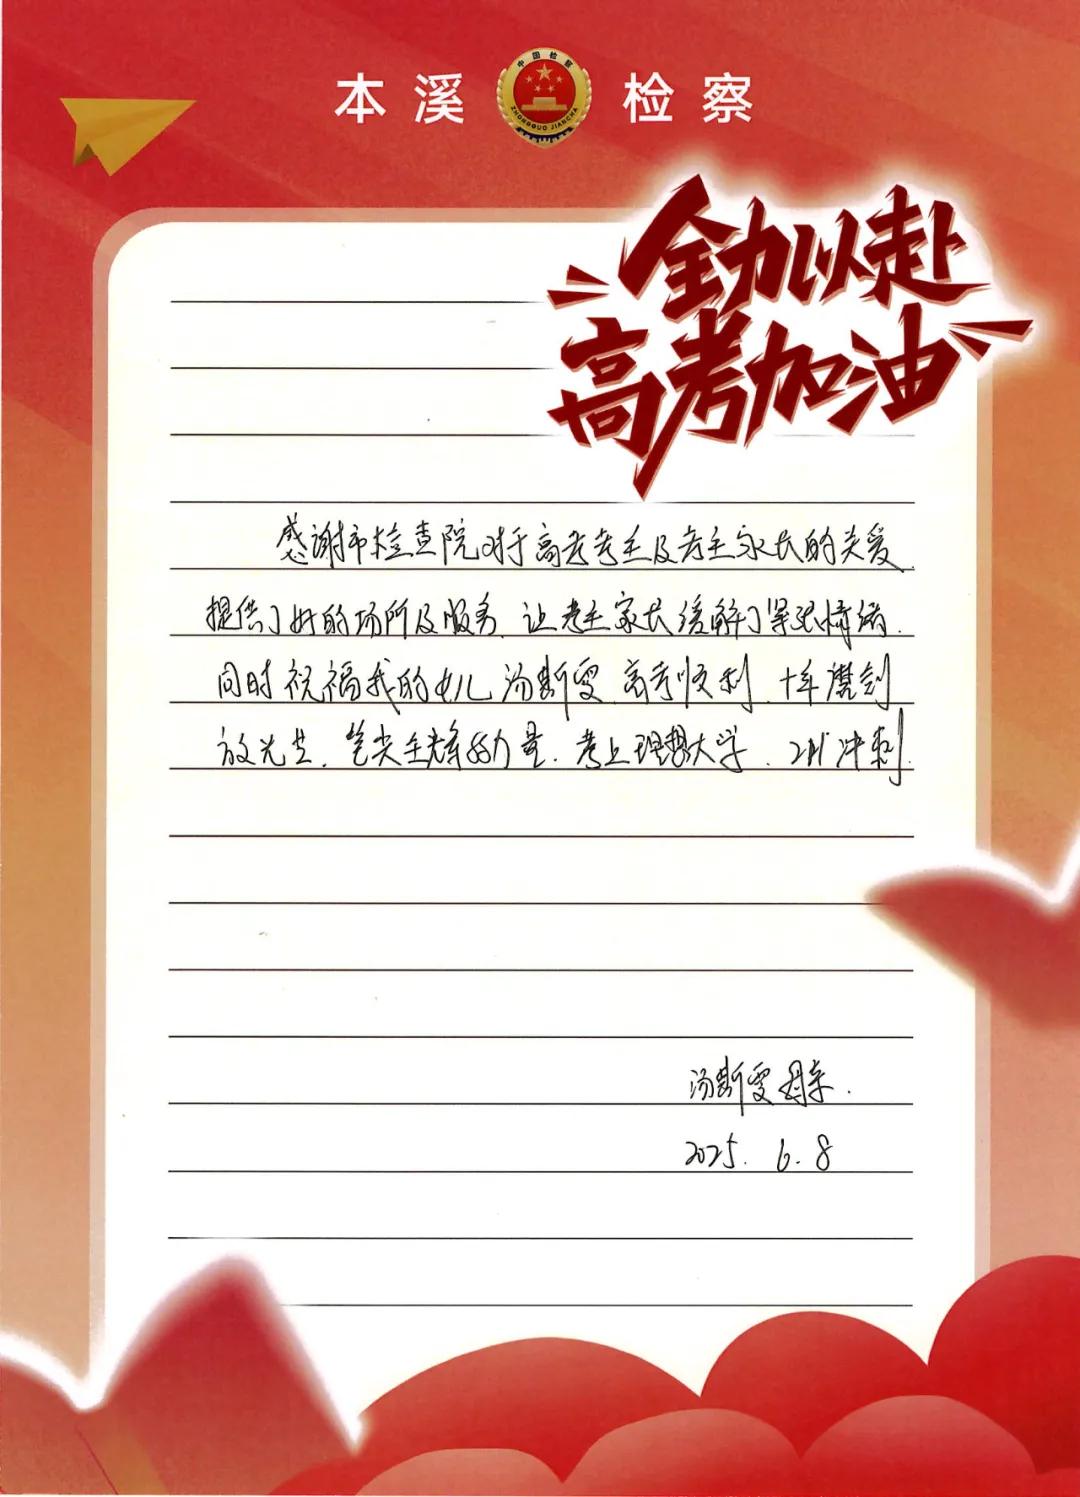 本溪 检察
中国检察
ZHONGGUO JIANCHA
全力以赴
高考加油
感谢市检查院对于高考考生及考生家长的关爱
提供了好的场所及服务,让考生家长缓解了紧张情绪.
同时祝福我的女儿汤斯雯,高考顺利,十年磨剑
放光芒,笔尖生辉 力量,考上理想大学, 冲刺
汤斯雯母亲.
2025. 6. 8